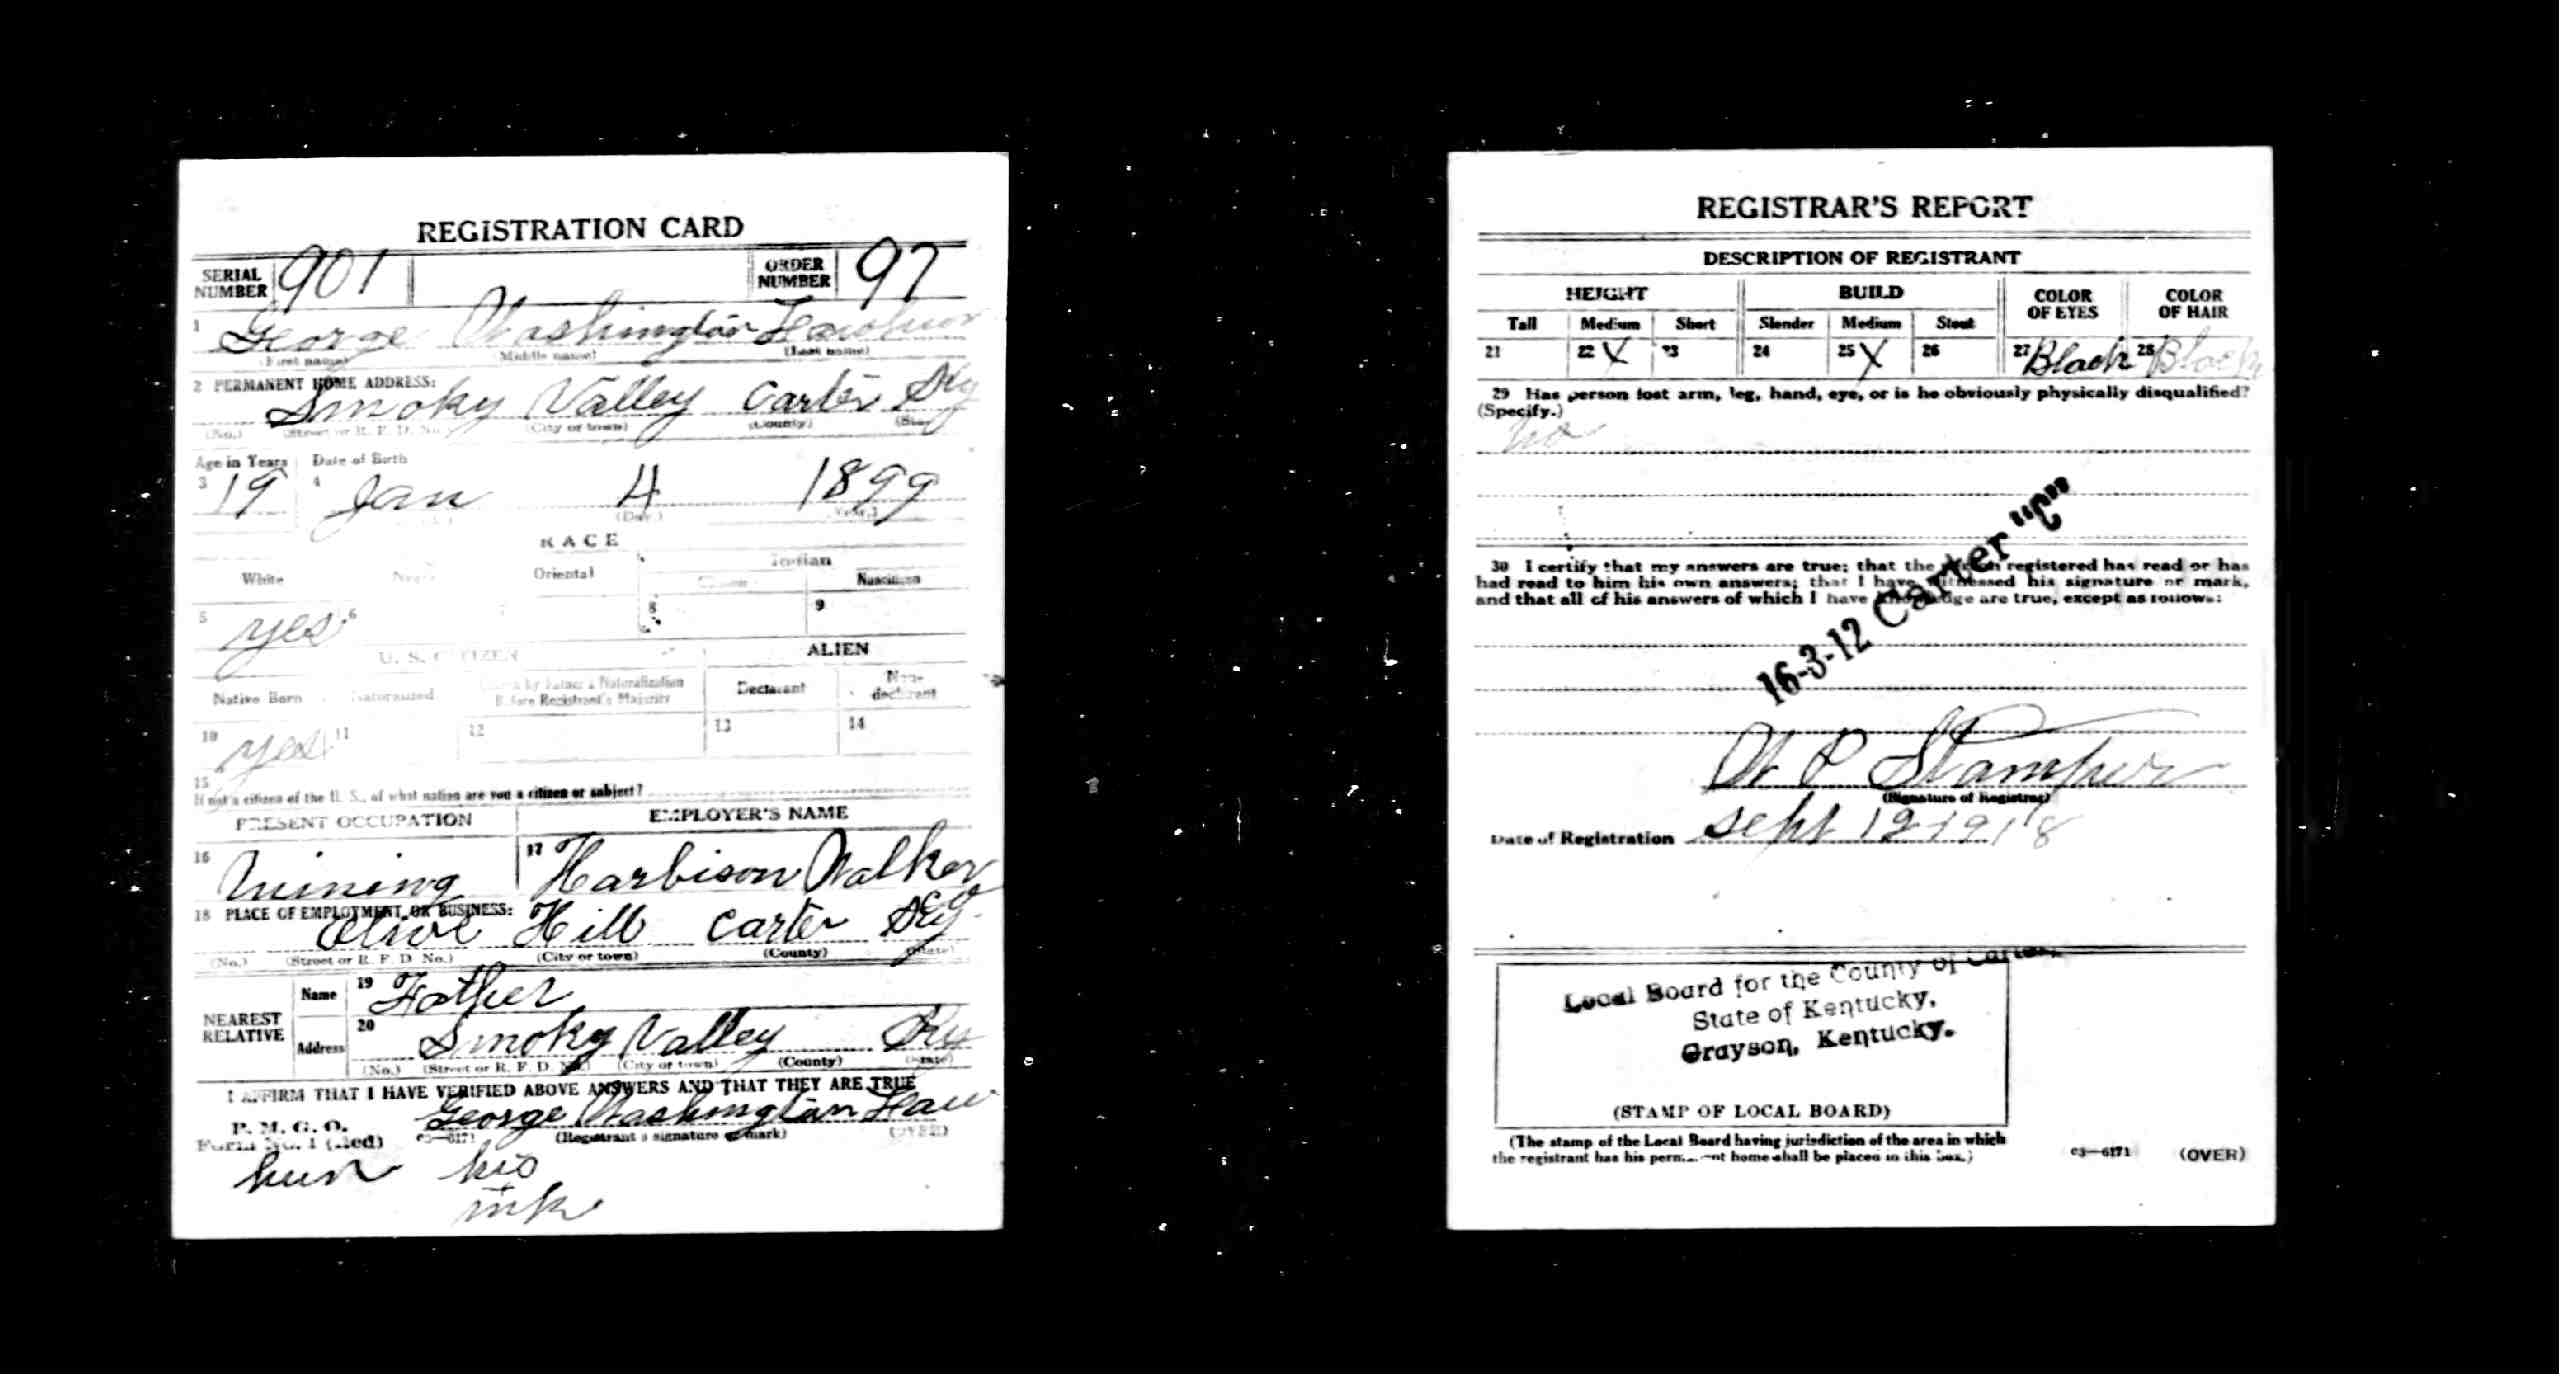 REGISTRATION CARD
SERIAL NUMBER 901 ORDER NUMBER 97
1 George Washington
(First name) (Middle name) (Last name)
2 PERMANENT HOME ADDRESS:
Smoky Valley Carter Ky
(No.) (Street or R. F. D. No.) (City or town) (County) (State)
Age in Years Date of Birth
3 19 4 Jan 4 1899
(Day.) (Year.)
RACE
White Negro Oriental Indian
Citizen Noncitizen
5 yes 6 7 8 9
U. S. CITIZEN ALIEN
Native Born Naturalized Citizen by Father's Naturalization Before Registrant's Majority Declarant Non-declarant
10 yes 11 12 13 14
15
If not a citizen of the U. S., of what nation are you a citizen or subject?
PRESENT OCCUPATION EMPLOYER'S NAME
16 Mining 17 Harbison Walker Co
18 PLACE OF EMPLOYMENT OR BUSINESS:
Olive Hill Carter Ky
(No.) (Street or R. F. D. No.) (City or town) (County) (State)
NEAREST RELATIVE Name 19 Father
Address 20 Smoky Valley Ky
(No.) (Street or R. F. D. No.) (City or town) (County) (State)
I AFFIRM THAT I HAVE VERIFIED ABOVE ANSWERS AND THAT THEY ARE TRUE
P. M. G. O.
Form No. 1 (Red) George Washington Haw
03—6171 (Registrant's signature or mark) (OVER)
his
mk
REGISTRAR'S REPORT
DESCRIPTION OF REGISTRANT
HEIGHT BUILD COLOR OF EYES COLOR OF HAIR
Tall Medium Short Slender Medium Stout
21 22 X 23 24 25 X 26 27 Black 28 Black
29 Has person lost arm, leg, hand, eye, or is he obviously physically disqualified?
(Specify.)
no
30 I certify that my answers are true; that the person registered has read or has
had read to him his own answers; that I have witnessed his signature or mark,
and that all of his answers of which I have knowledge are true, except as follows:
16-3-12 Carter "C"
P Stamper
(Signature of Registrar)
Date of Registration Sept 12 1918
Local Board for the County of Carter,
State of Kentucky,
Grayson, Kentucky.
(STAMP OF LOCAL BOARD)
(The stamp of the Local Board having jurisdiction of the area in which
the registrant has his permanent home shall be placed in this box.)
03—6171 (OVER)